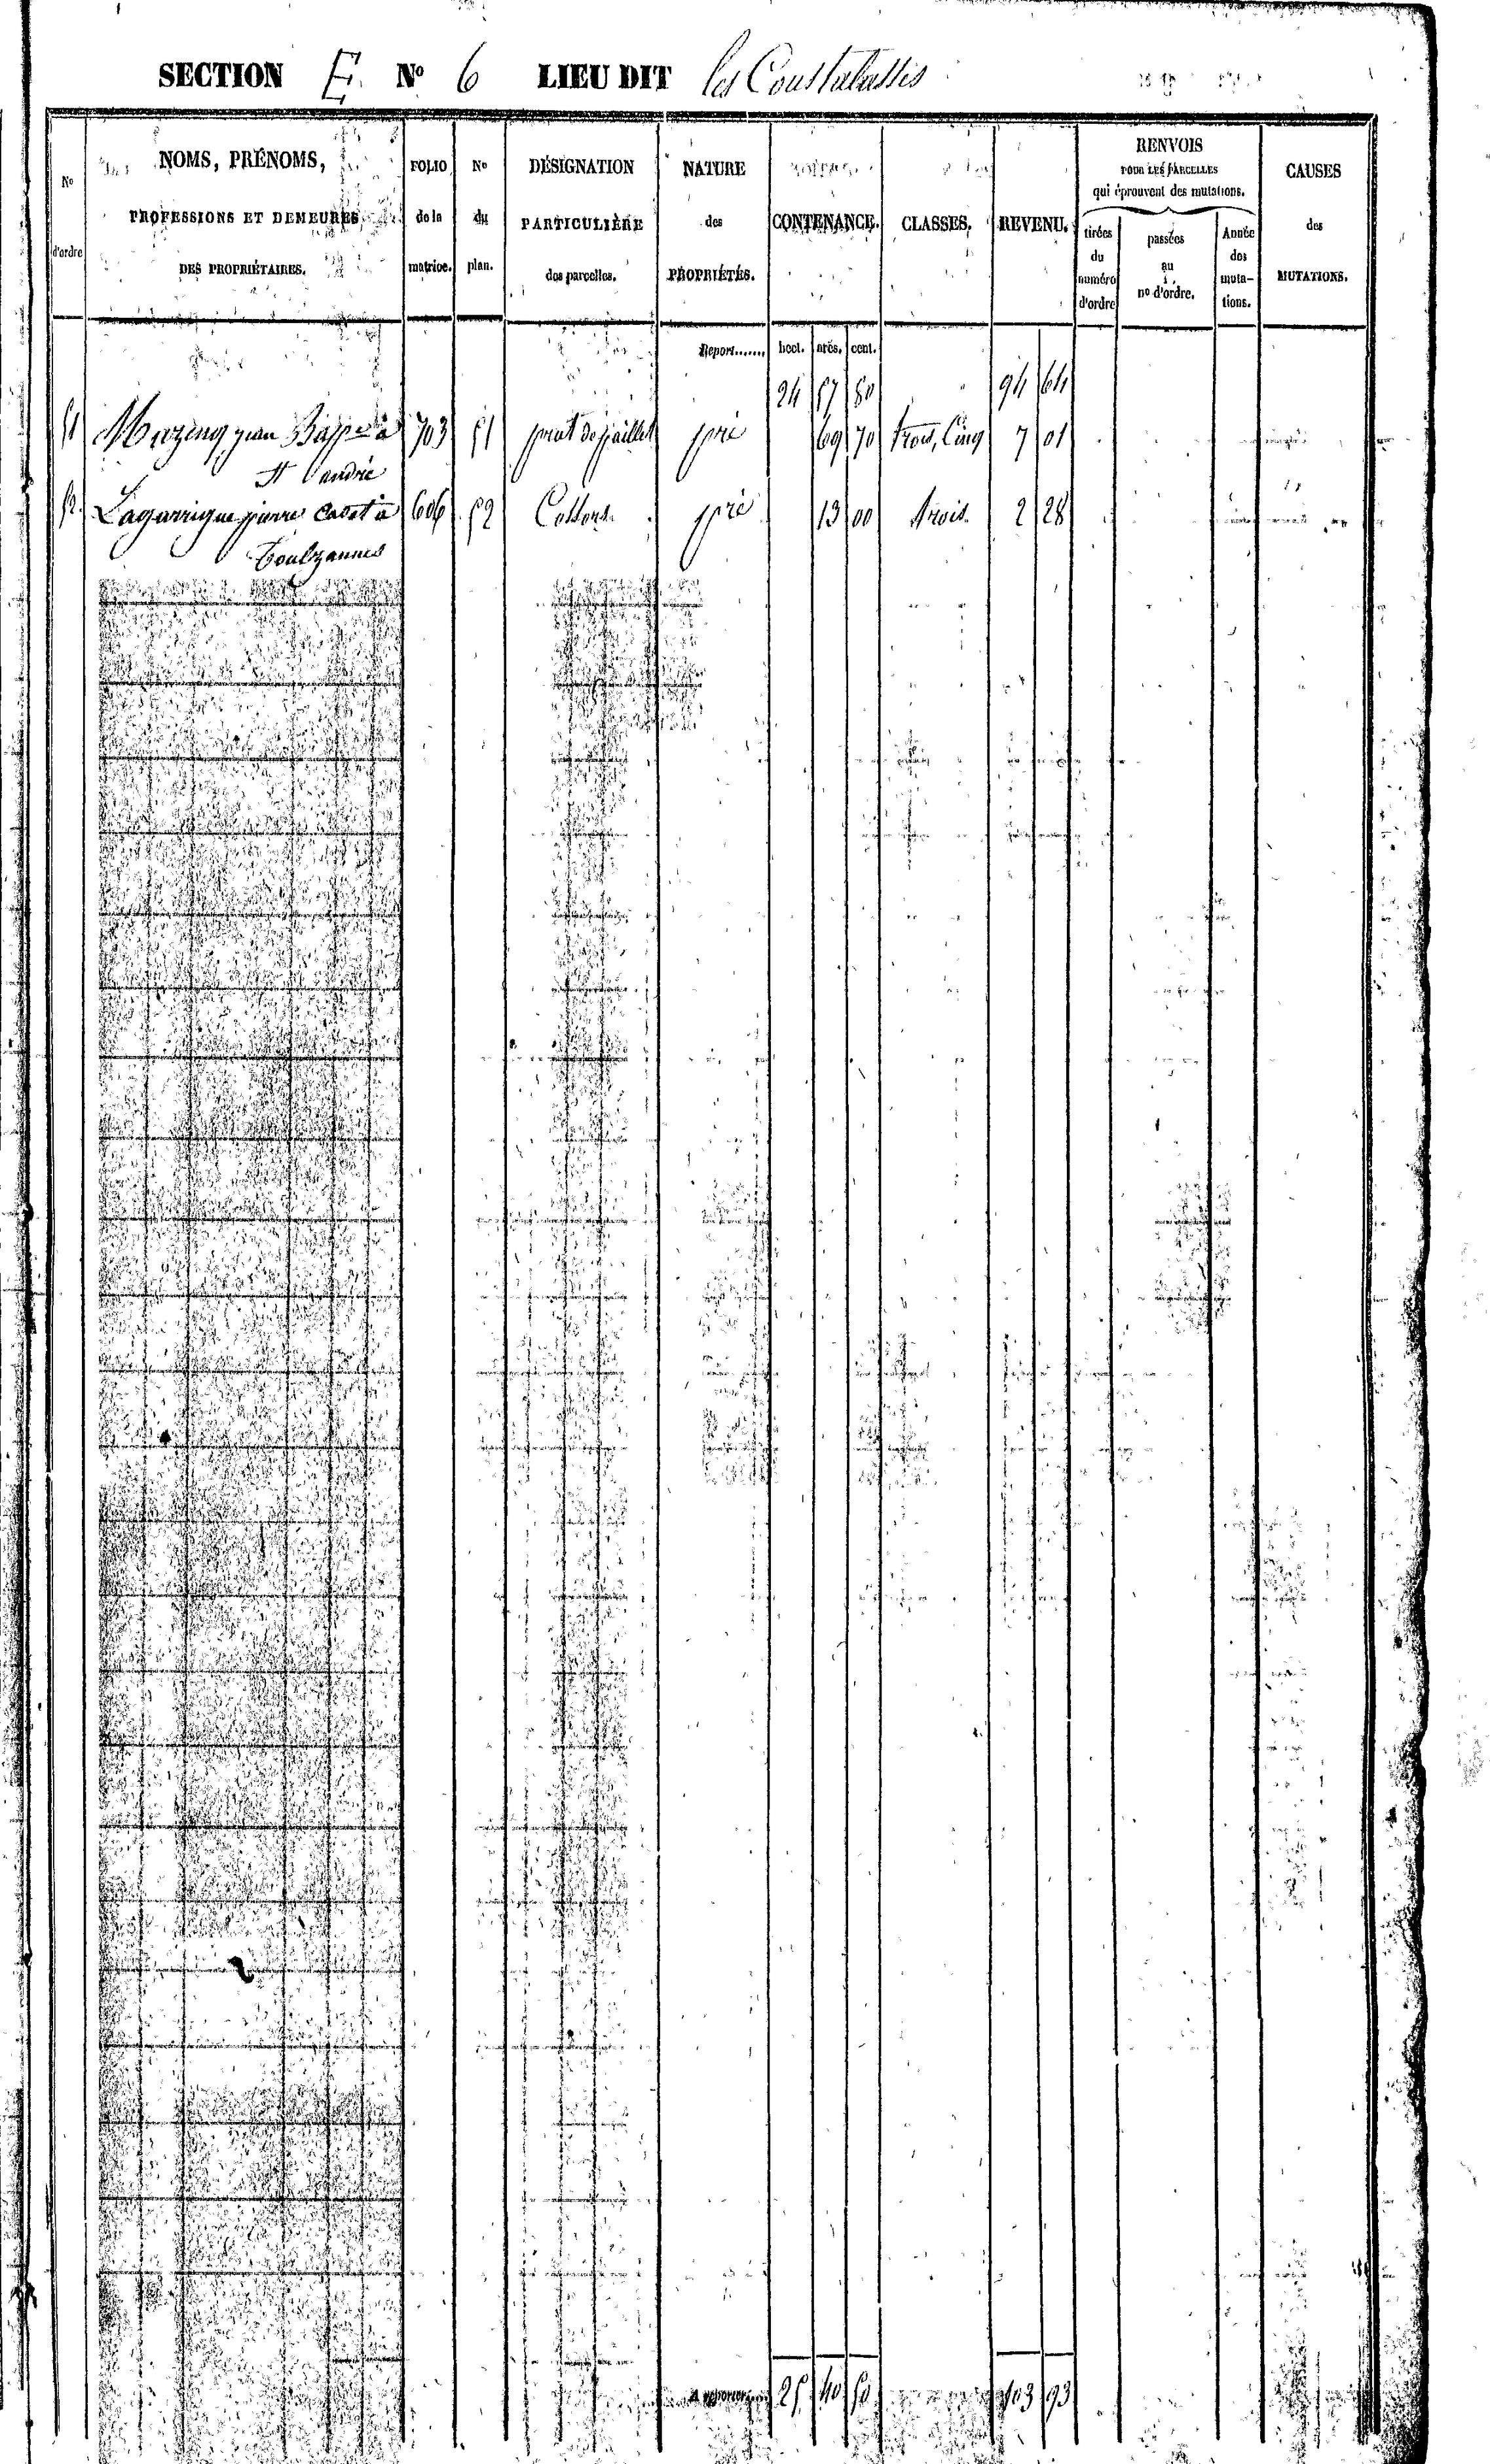 SECTION E N° 6 LIEU DIT les Coustalassis
N° d'ordre
NOMS, PRÉNOMS,
PROFESSIONS ET DEMEURES
DES PROPRIÉTAIRES.
FOLIO de la matrice.
N° du plan.
DÉSIGNATION
PARTICULIÈRE
des parcelles.
NATURE
des
PROPRIÉTÉS.
CONTENANCE.
CLASSES.
REVENU.
RENVOIS
POUR LES PARCELLES
qui éprouvent des mutations.
tirées du numéro d'ordre
passées au n° d'ordre.
Année des mutations.
CAUSES
des
MUTATIONS.
Report....... hect. ares. cent.
24 57 80 94 64
51 jean Bapte à 703 51 prat de paillet pré 69 70 trois, Cinq 7 01
St andrié
52. Lagarrigue pierre Cadet à 606 52 pré 13 00 trois. 2 28
Toulzannes
25 40 50 103 93